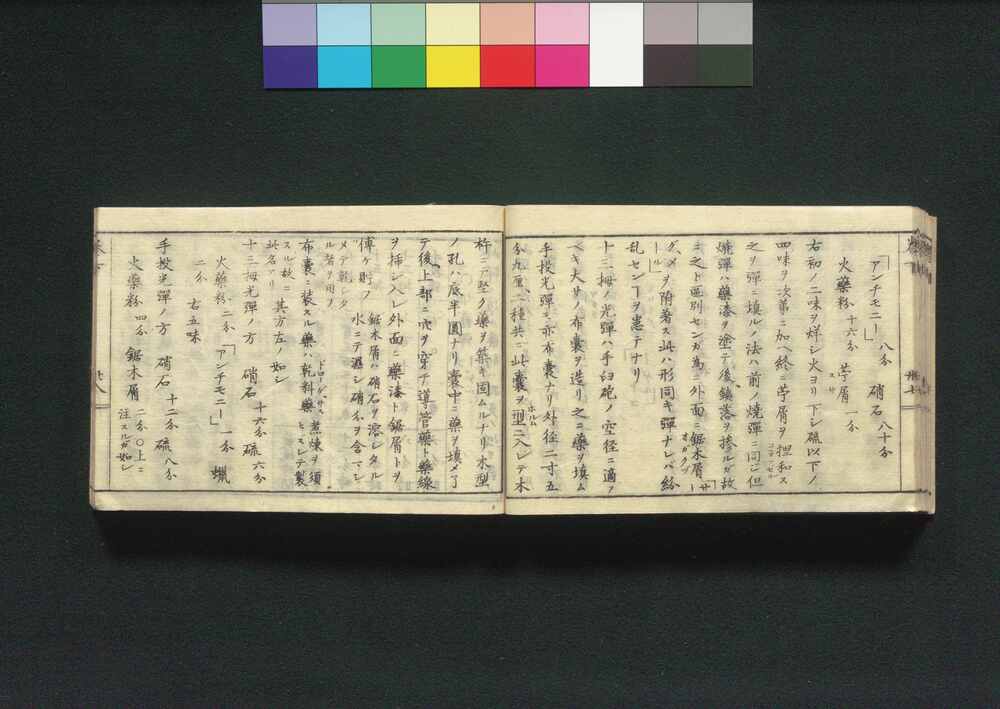 「アンチモニー」 八分 硝石 八十分
火藥粉 十六分 苧屑 一分
右初ノ二味ヲ烊シ火ヨリ下シ硫以下ノ
四味ヲ次第ニ加ヘ終ニ苧屑ヲ捏和ス
之ヲ彈ニ填ルノ法ハ前ノ燒彈ニ同ジ但
燒彈ハ藥漆ヲ塗テ後鎮落ヲ摻ルガ故
ニ之ト區別センガ為ニ外面ニ鋸木屑「サー
グメール」ヲ附著ス此ハ形同キ彈ナレバ紛
乱センヿヲ恚テナリ
十三拇ノ光彈ハ手臼砲ノ空径ニ適フ
ベキ大サノ布嚢ヲ造リ之ニ藥ヲ填ム
手投光彈モ亦布嚢ナリ外径二寸五
分九厘、二種共ニ此嚢ヲ型ニ入レテ木
杵ニテ堅ク藥ヲ築キ固ムルナリ木型
ノ孔ハ底半圓ナリ嚢中ニ藥ヲ填メ了
テ後上部ニ穴ヲ穿チ導管藥ト藥線
ヲ挿シ入レ外面ニ藥漆ト鋸屑トヲ
傅ケ貯フ 鋸木屑ハ硝石ヲ溶シタル
水ニテ濕シ硝分ヲ含マシ
メテ乾シタ
ル者ヲ用フ
布嚢ニ装スル藥ハ乾料藥 煮煉ヲ須
ヒズシテ製
スル故ニ
此名アリ 其方左ノ如シ
十三拇光彈ノ方 硝石 十六分 硫 六分
火藥粉 二分 「アンチモニー」 一分 蝋
二分 右五味
手投光彈ノ方 硝石 十二分 硫 八分
火藥粉 四分 鋸木屑 二分〇上ニ
注スルガ如シ